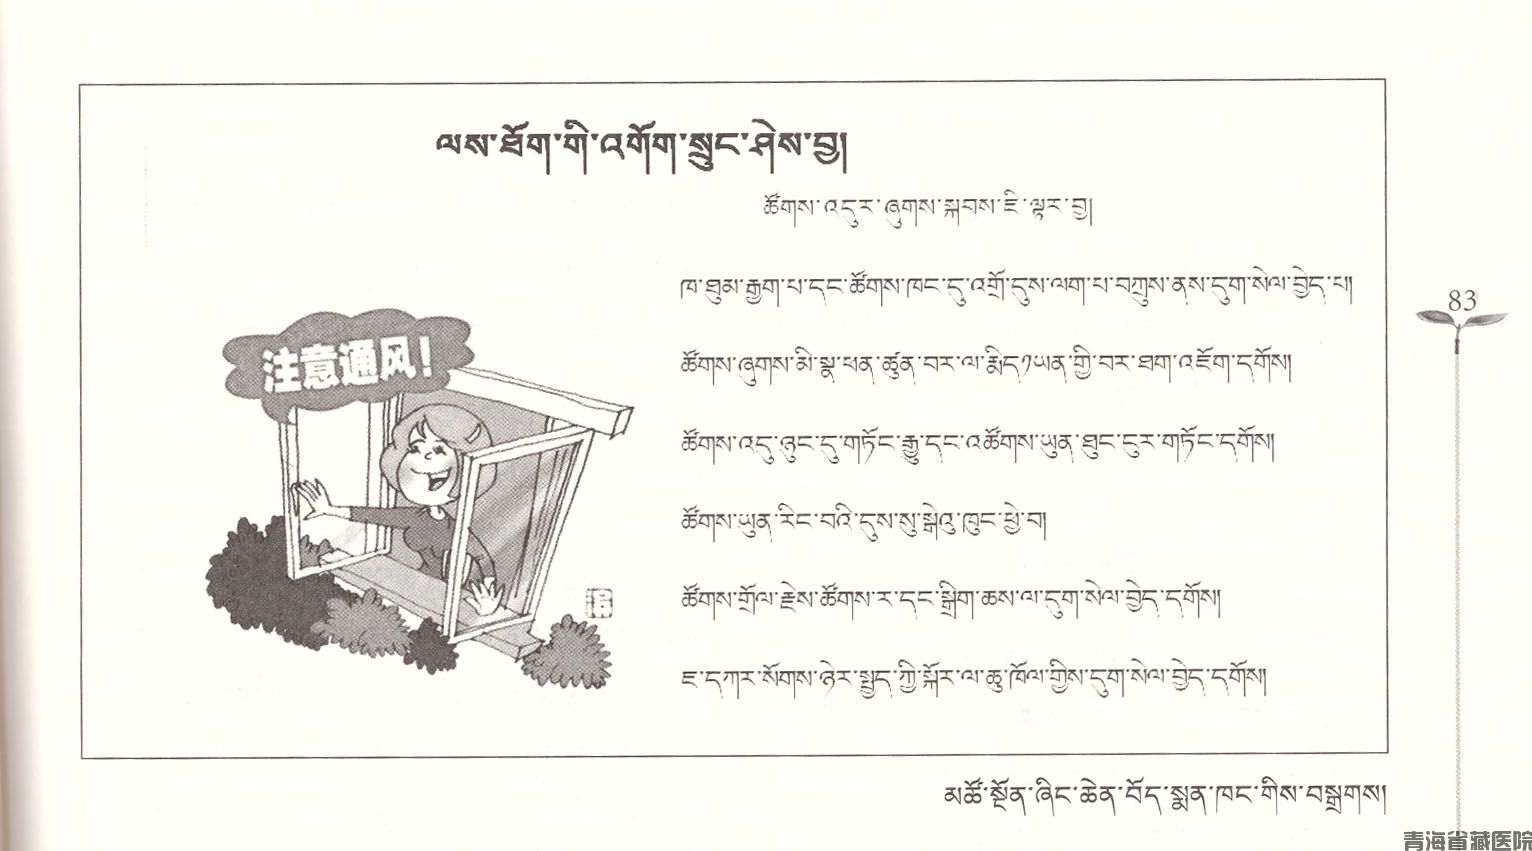 ལས་ཐོག་གི་འགོག་སྲུང་ཤེས་བྱ།
ཚོགས་འདུར་ཞུགས་སྐབས་ཇི་ལྟར་བྱ།
ཁ་ཐུམ་རྒྱག་པ་དང་ཚོགས་ཁང་དུ་འགྲོ་དུས་ལག་པ་བཀྲུས་ནས་དུག་སེལ་བྱེད་པ།
注意通风!
ཚོགས་ཞུགས་མི་སྣ་ཕན་ཚུན་བར་ལ་རྨིད༡ཡན་གྱི་བར་ཐག་འཇོག་དགོས།
ཚོགས་འདུ་ཉུང་དུ་གཏོང་རྒྱུ་དང་འཚོགས་ཡུན་ཐུང་ངུར་གཏོང་དགོས།
ཚོགས་ཡུན་རིང་བའི་དུས་སུ་སྒེའུ་ཁུང་ཕྱེ་བ།
ཚོགས་གྲོལ་རྗེས་ཚོགས་ར་དང་སྒྲིག་ཆས་ལ་དུག་སེལ་བྱེད་དགོས།
ཇ་དཀར་སོགས་ཉེར་སྤྱད་ཀྱི་སྐོར་ལ་ཆུ་ཁོལ་གྱིས་དུག་སེལ་བྱེད་དགོས།
83
མཚོ་སྔོན་ཞིང་ཆེན་བོད་སྨན་ཁང་གིས་བསྒྲགས།
青海省藏医院